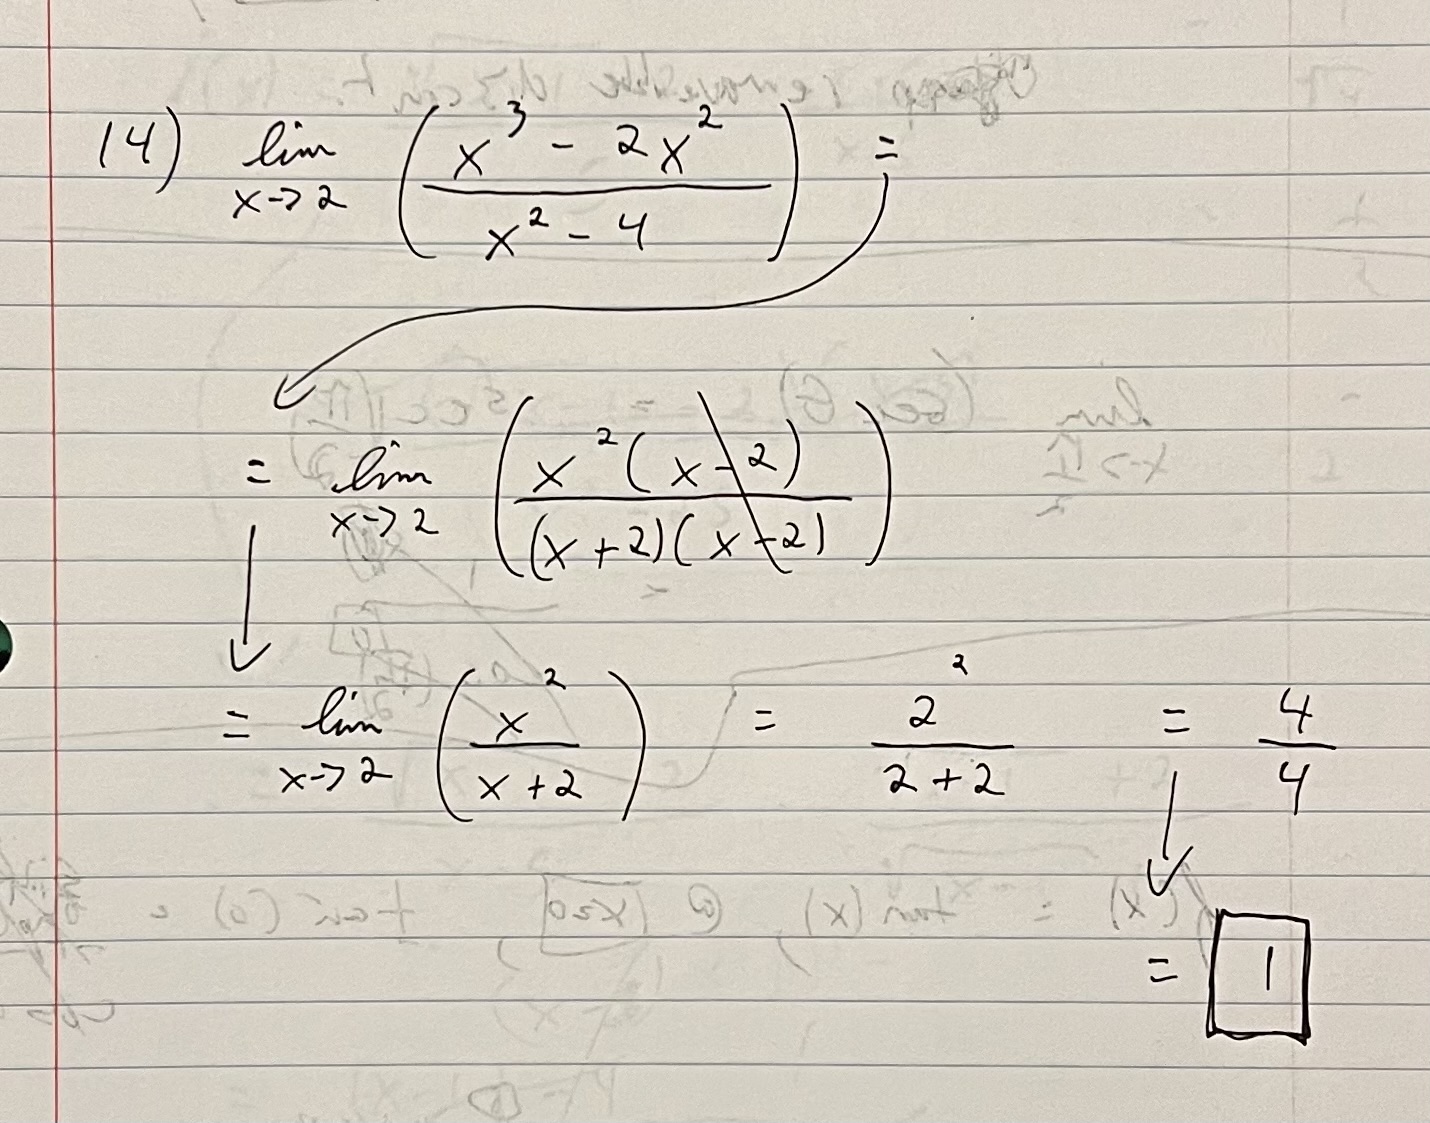 14) lim x→2 ( (x³ - 2x²) / (x² - 4) ) =
= lim x→2 ( (x²(x-2)) / ((x+2)(x-2)) )
= lim x→2 ( x² / (x+2) ) = 2² / (2+2) = 4/4
= 1